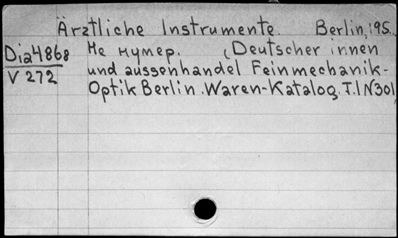 Ärztliche Instrumente. Berlin, 195..
Dia4868 Не нумер. (Deutscher innen
V 272 und aussenhandel Feinmechanik-
Optik Berlin. Waren-Katalog, T.I N301